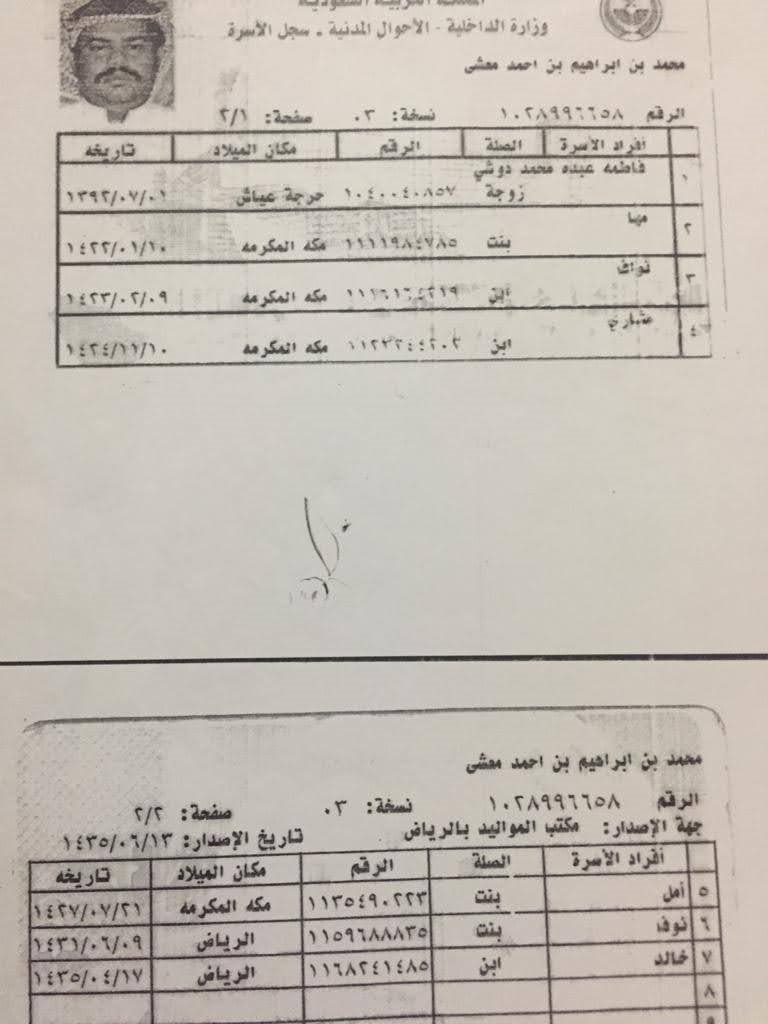 المملكة العربية السعودية
وزارة الداخلية - الأحوال المدنية - سجل الأسرة
محمد بن ابراهيم بن احمد معشى
الرقم ١٠٢٨٩٩٦٦٥٨ نسخة: ٠٣ صفحة: ٢/١
أفراد الأسرة الصلة الرقم مكان الميلاد تاريخه
١ فاطمه عبده محمد دوشي
زوجة ١٠٤٠٠٤٠٨٥٧ حرجة عياش ١٣٩٢/٠٧/٠١
٢ مها
بنت ١١١١٩٨٤٧٨٥ مكه المكرمه ١٤٢٢/٠١/١٠
٣ نواف
ابن مكه المكرمه ١٤٢٣/٠٢/٠٩
٤ مشاري
ابن مكه المكرمه ١٤٢٤/١١/١٠
محمد بن ابراهيم بن احمد معشى
الرقم ١٠٢٨٩٩٦٦٥٨ نسخة: ٠٣ صفحة: ٢/٢
جهة الإصدار: مكتب المواليد بالرياض تاريخ الإصدار: ١٤٣٥/٠٦/١٣
أفراد الأسرة الصلة الرقم مكان الميلاد تاريخه
٥ أمل بنت ١١٣٥٤٩٠٢٢٣ مكه المكرمه ١٤٢٧/٠٧/٢١
٦ نوف بنت ١١٥٩٦٨٨٨٣٥ الرياض ١٤٣١/٠٦/٠٩
٧ خالد ابن ١١٦٨٢٤١٤٨٥ الرياض ١٤٣٥/٠٤/١٧
٨
٩